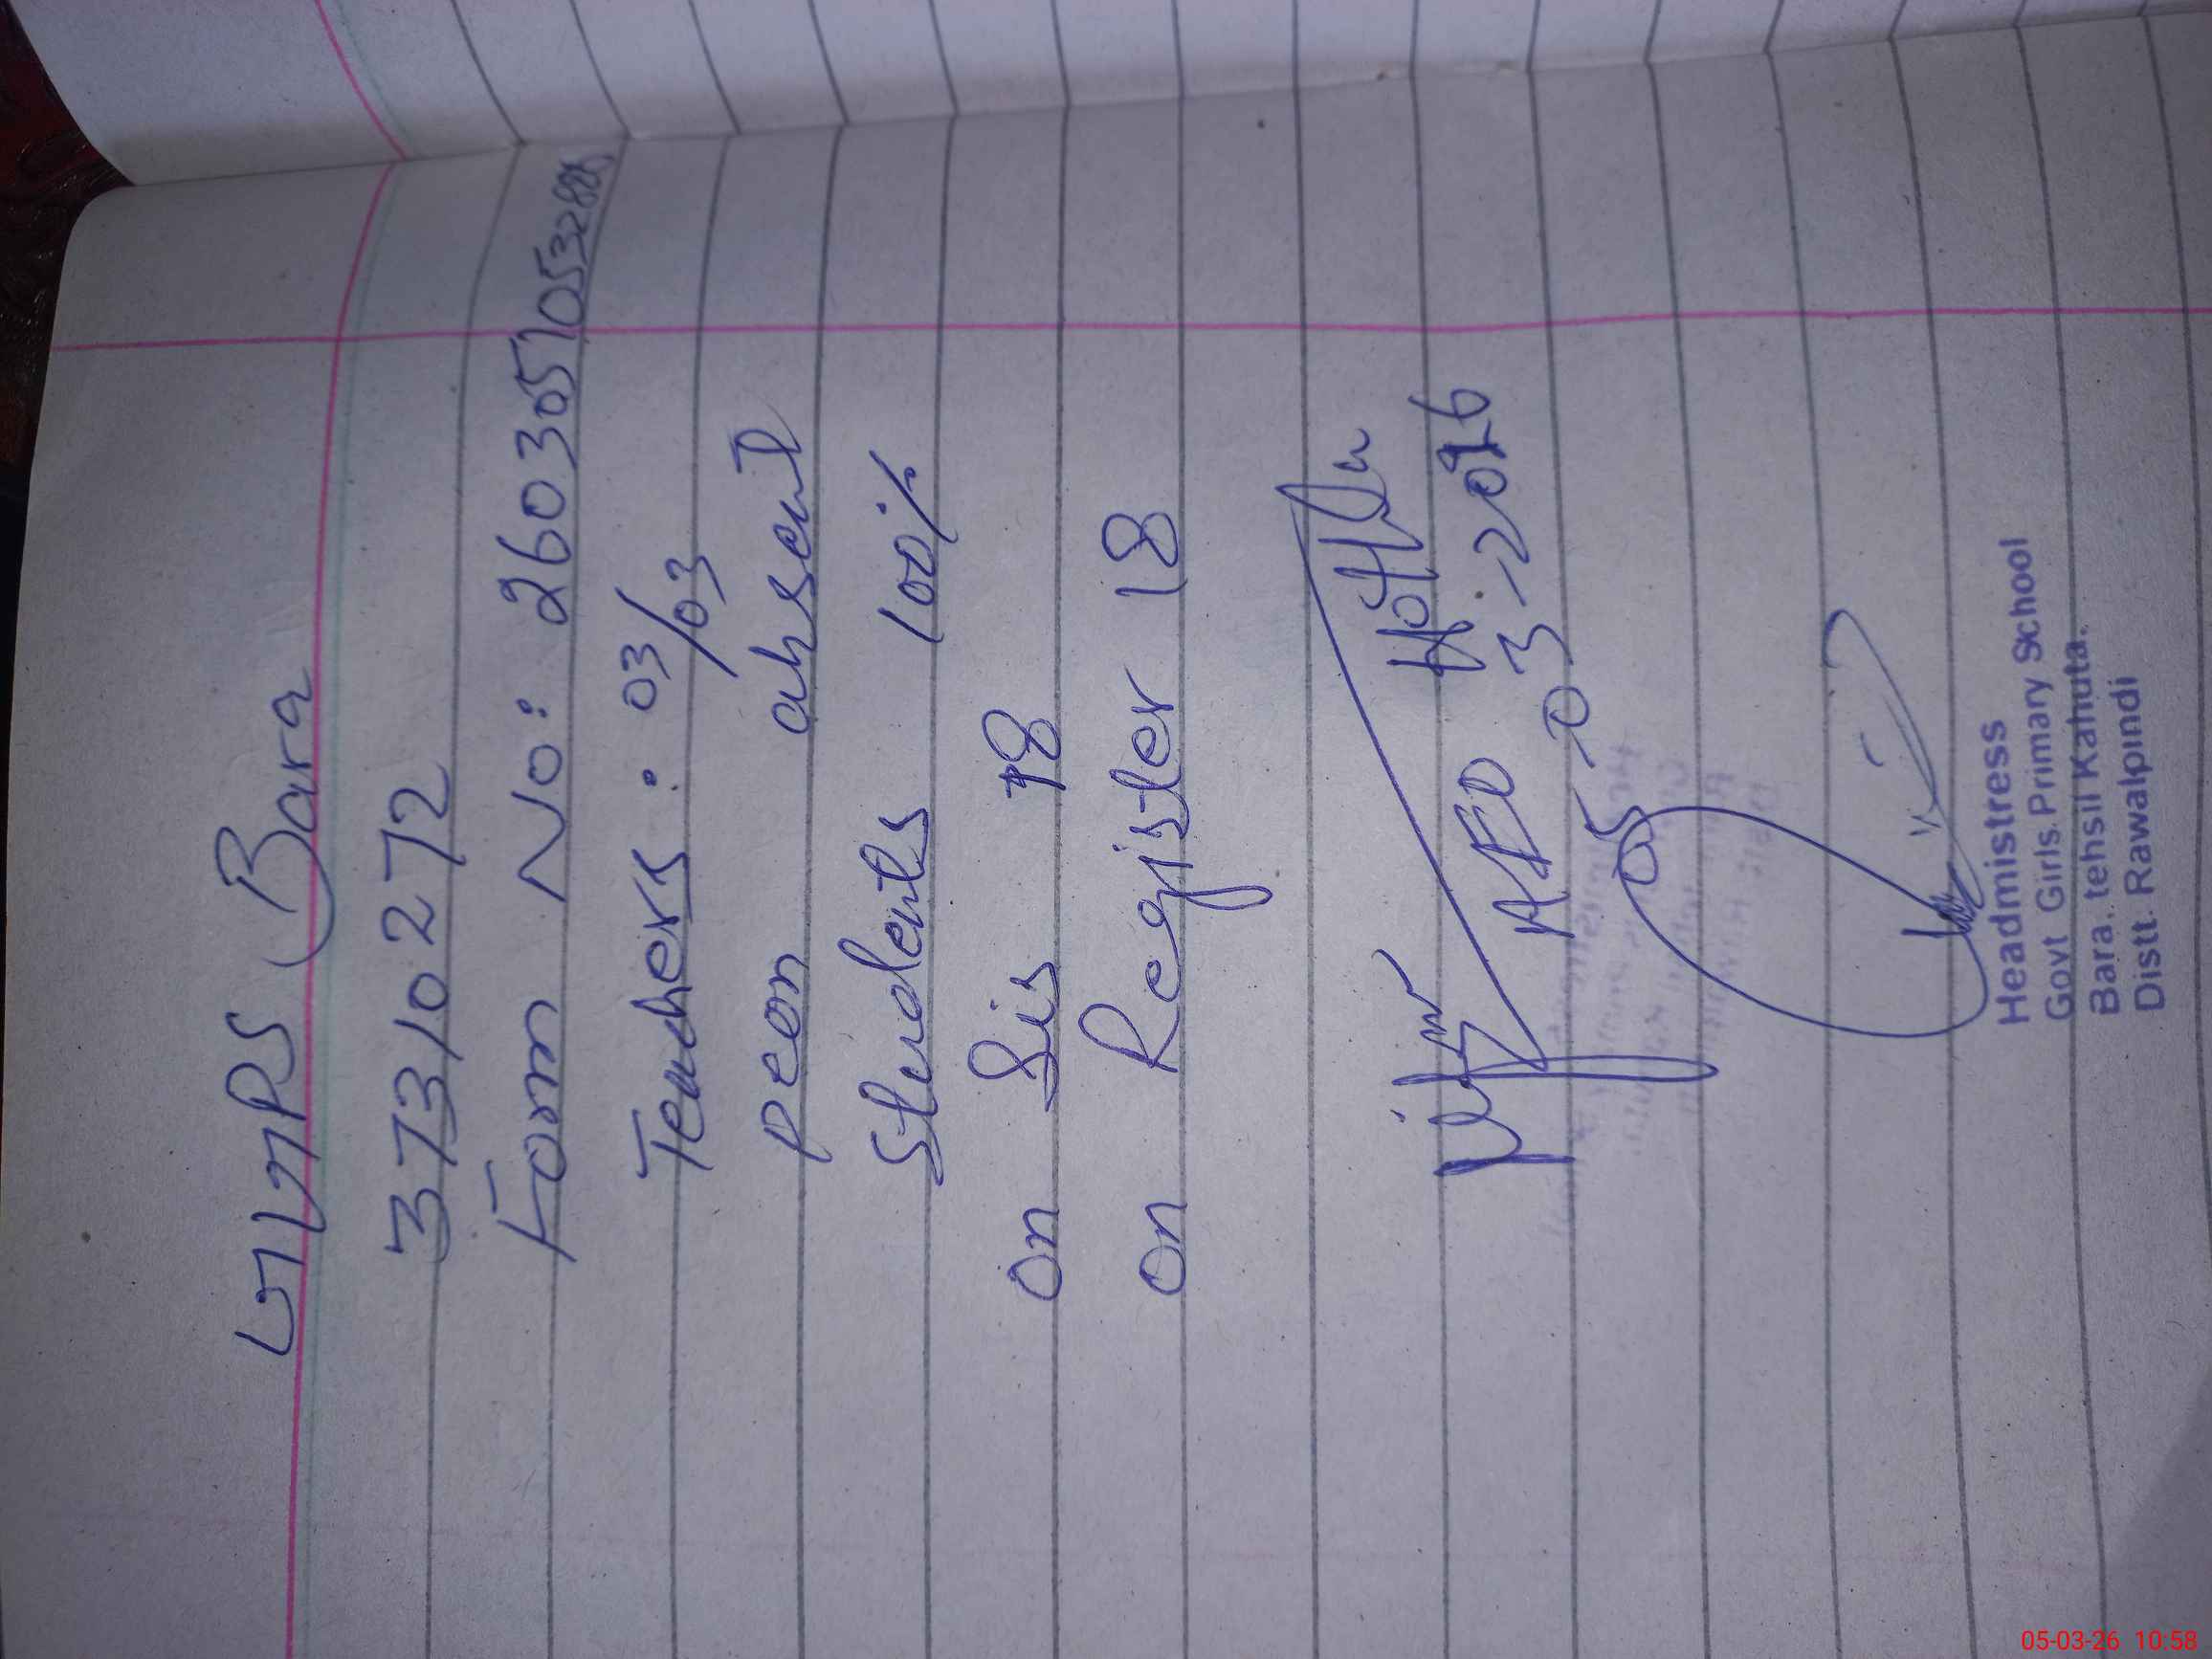 GGPS Bara
37310272
Form No: 260305105328
Teachers: 03/03
peon absent
Students 100%
on Sis 18
on Register 18
AEO
05-03-2026
Headmistress
Govt Girls Primary School
Bara, tehsil Kahuta.
Distt. Rawalpindi
05-03-26 10:58